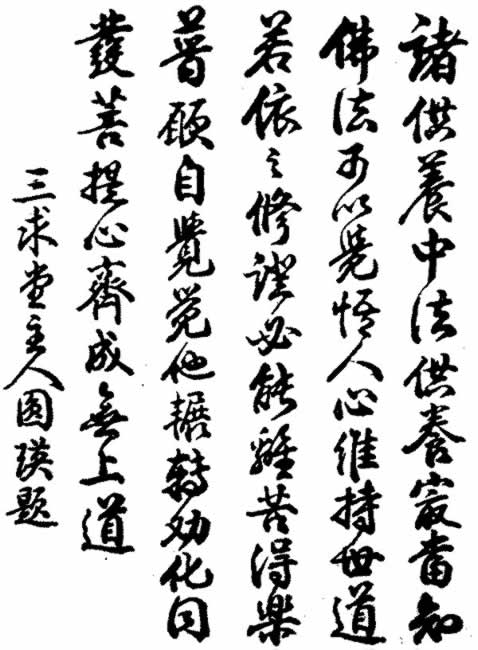 諸供養中法供養最當知
佛法可以覺悟人心維持世道
若依之修證必能離苦得樂
普願自覺覺他輾轉劝化同
發菩提心齊成無上道
三求堂主人圆瑛题